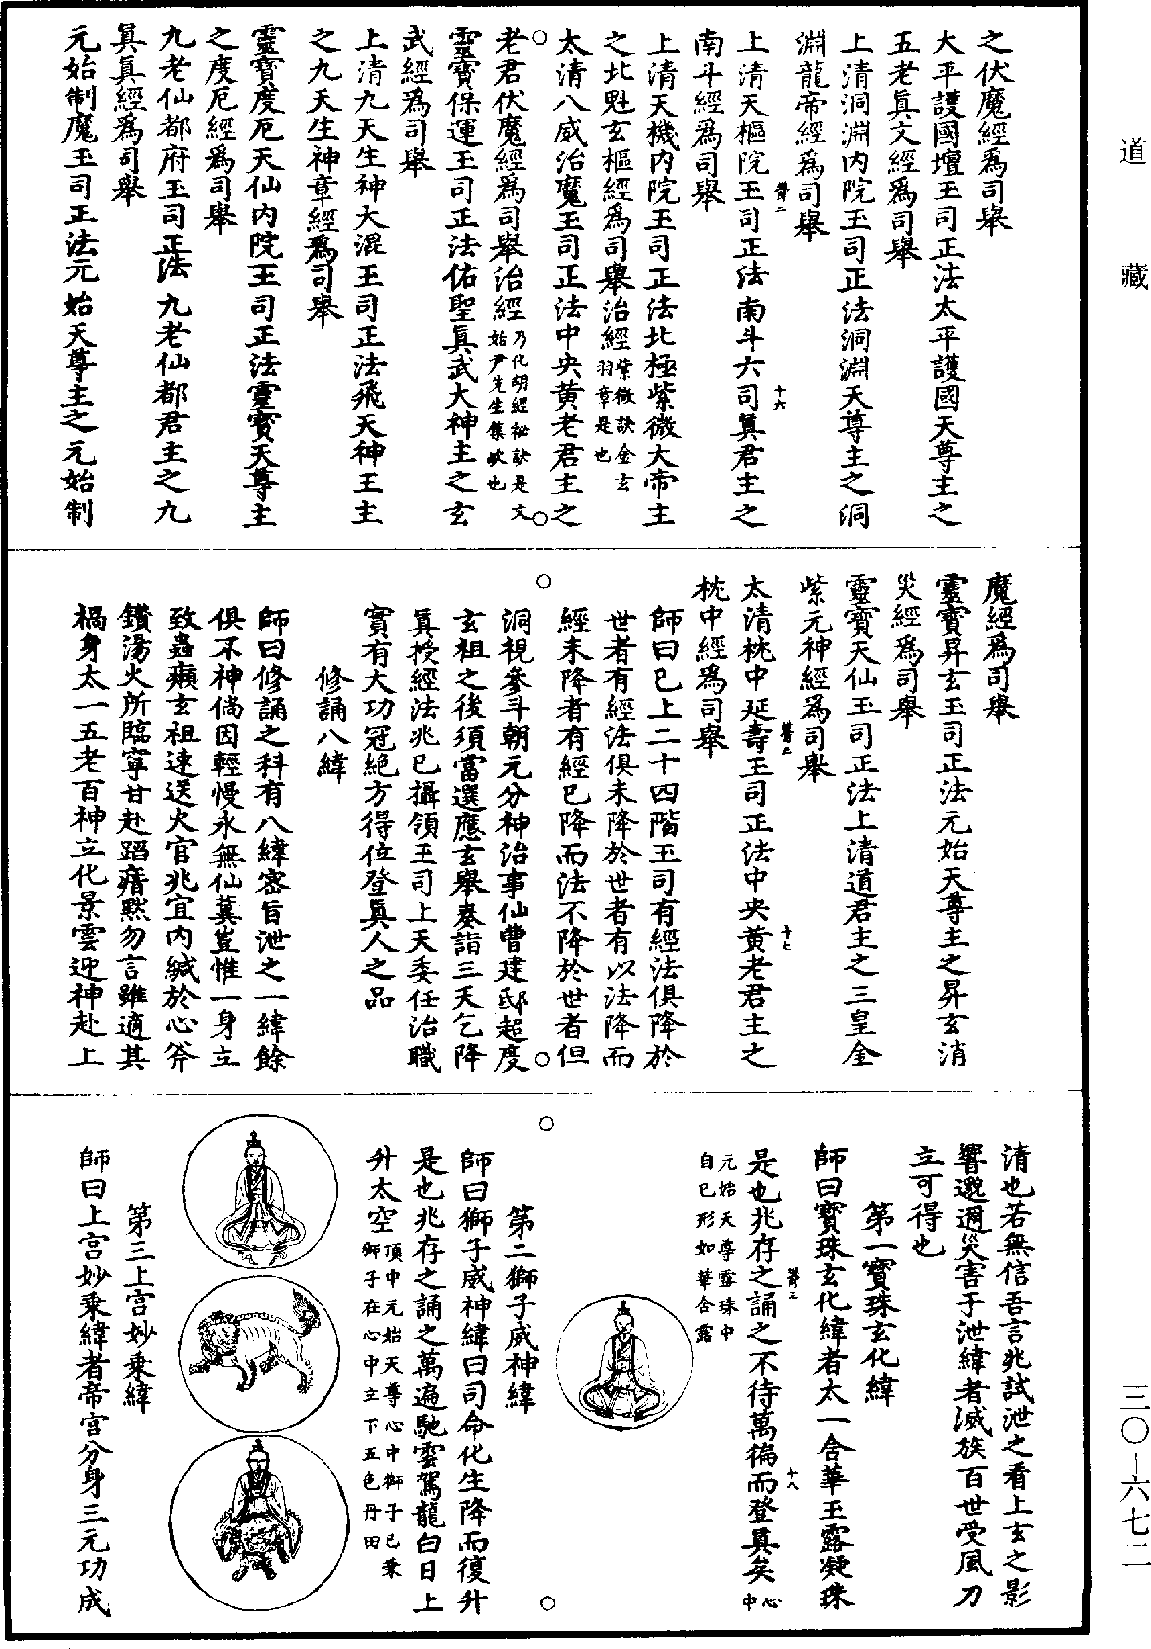 道藏
三〇—六七二
之伏魔經爲司舉
大平護國壇玉司正法太平護國天尊主之
五老眞文經爲司舉
上清洞淵內院玉司正法洞淵天尊主之洞
淵龍帝經爲司舉
上清天樞院玉司正法南斗六司眞君主之
南斗經爲司舉
上清天機內院玉司正法北極紫微大帝主
之北魁玄樞經爲司舉治經紫微訣金玄
羽章是也
太清八威治魔玉司正法中央黃老君主之
老君伏魔經爲司舉治經乃化胡經祕訣是文
始尹先生集故也
靈寶保運玉司正法佑聖眞武大神主之玄
武經爲司舉
上清九天生神大混玉司正法飛天神王主
之九天生神章經爲司舉
靈寶度厄天仙內院玉司正法靈寶天尊主
之度厄經爲司舉
九老仙都府玉司正法九老仙都君主之九
眞眞經爲司舉
元始制魔玉司正法元始天尊主之元始制
魔經爲司舉
靈寶昇玄玉司正法元始天尊主之昇玄消
災經爲司舉
靈寶天仙玉司正法上清道君主之三皇金
紫元神經爲司舉
太清枕中延壽玉司正法中央黃老君主之
枕中經爲司舉
師曰已上二十四階玉司有經法俱降於
世者有經法俱未降於世者有以法降而
經未降者有經已降而法不降於世者但
洞視參斗朝元分神治事仙曹建邸超度
玄祖之後須當選應玄舉奏詣三天乞降
眞授經法兆已攝領玉司上天委任治職
實有大功冠絕方得位登眞人之品
修誦八緯
師曰修誦之科有八緯密旨泄之一緯餘
俱不神倘因輕慢永無仙冀豈惟一身立
致蟲癩玄祖速送火官兆宜內緘於心斧
鑕湯火所臨寧甘赴蹈瘖默勿言雖適其
禍身太一五老百神立化景雲迎神赴上
清也若無信吾言兆試泄之看上玄之影
響遐邇災害于泄緯者滅族百世受風刀
立可得也
第一寶珠玄化緯
師曰寶珠玄化緯者太一含華玉露凝珠
是也兆存之誦之不待萬徧而登眞矣心中
元始天尊露珠中
自已形如華含露
第二獅子威神緯
師曰獅子威神緯曰司命化生降而復升
是也兆存之誦之萬遍馳雲駕龍白日上
升太空頂中元始天尊心中獅子已乘
獅子在心中立下五色丹田
第三上宮妙乘緯
師曰上宮妙乘緯者帝宮分身三元功成